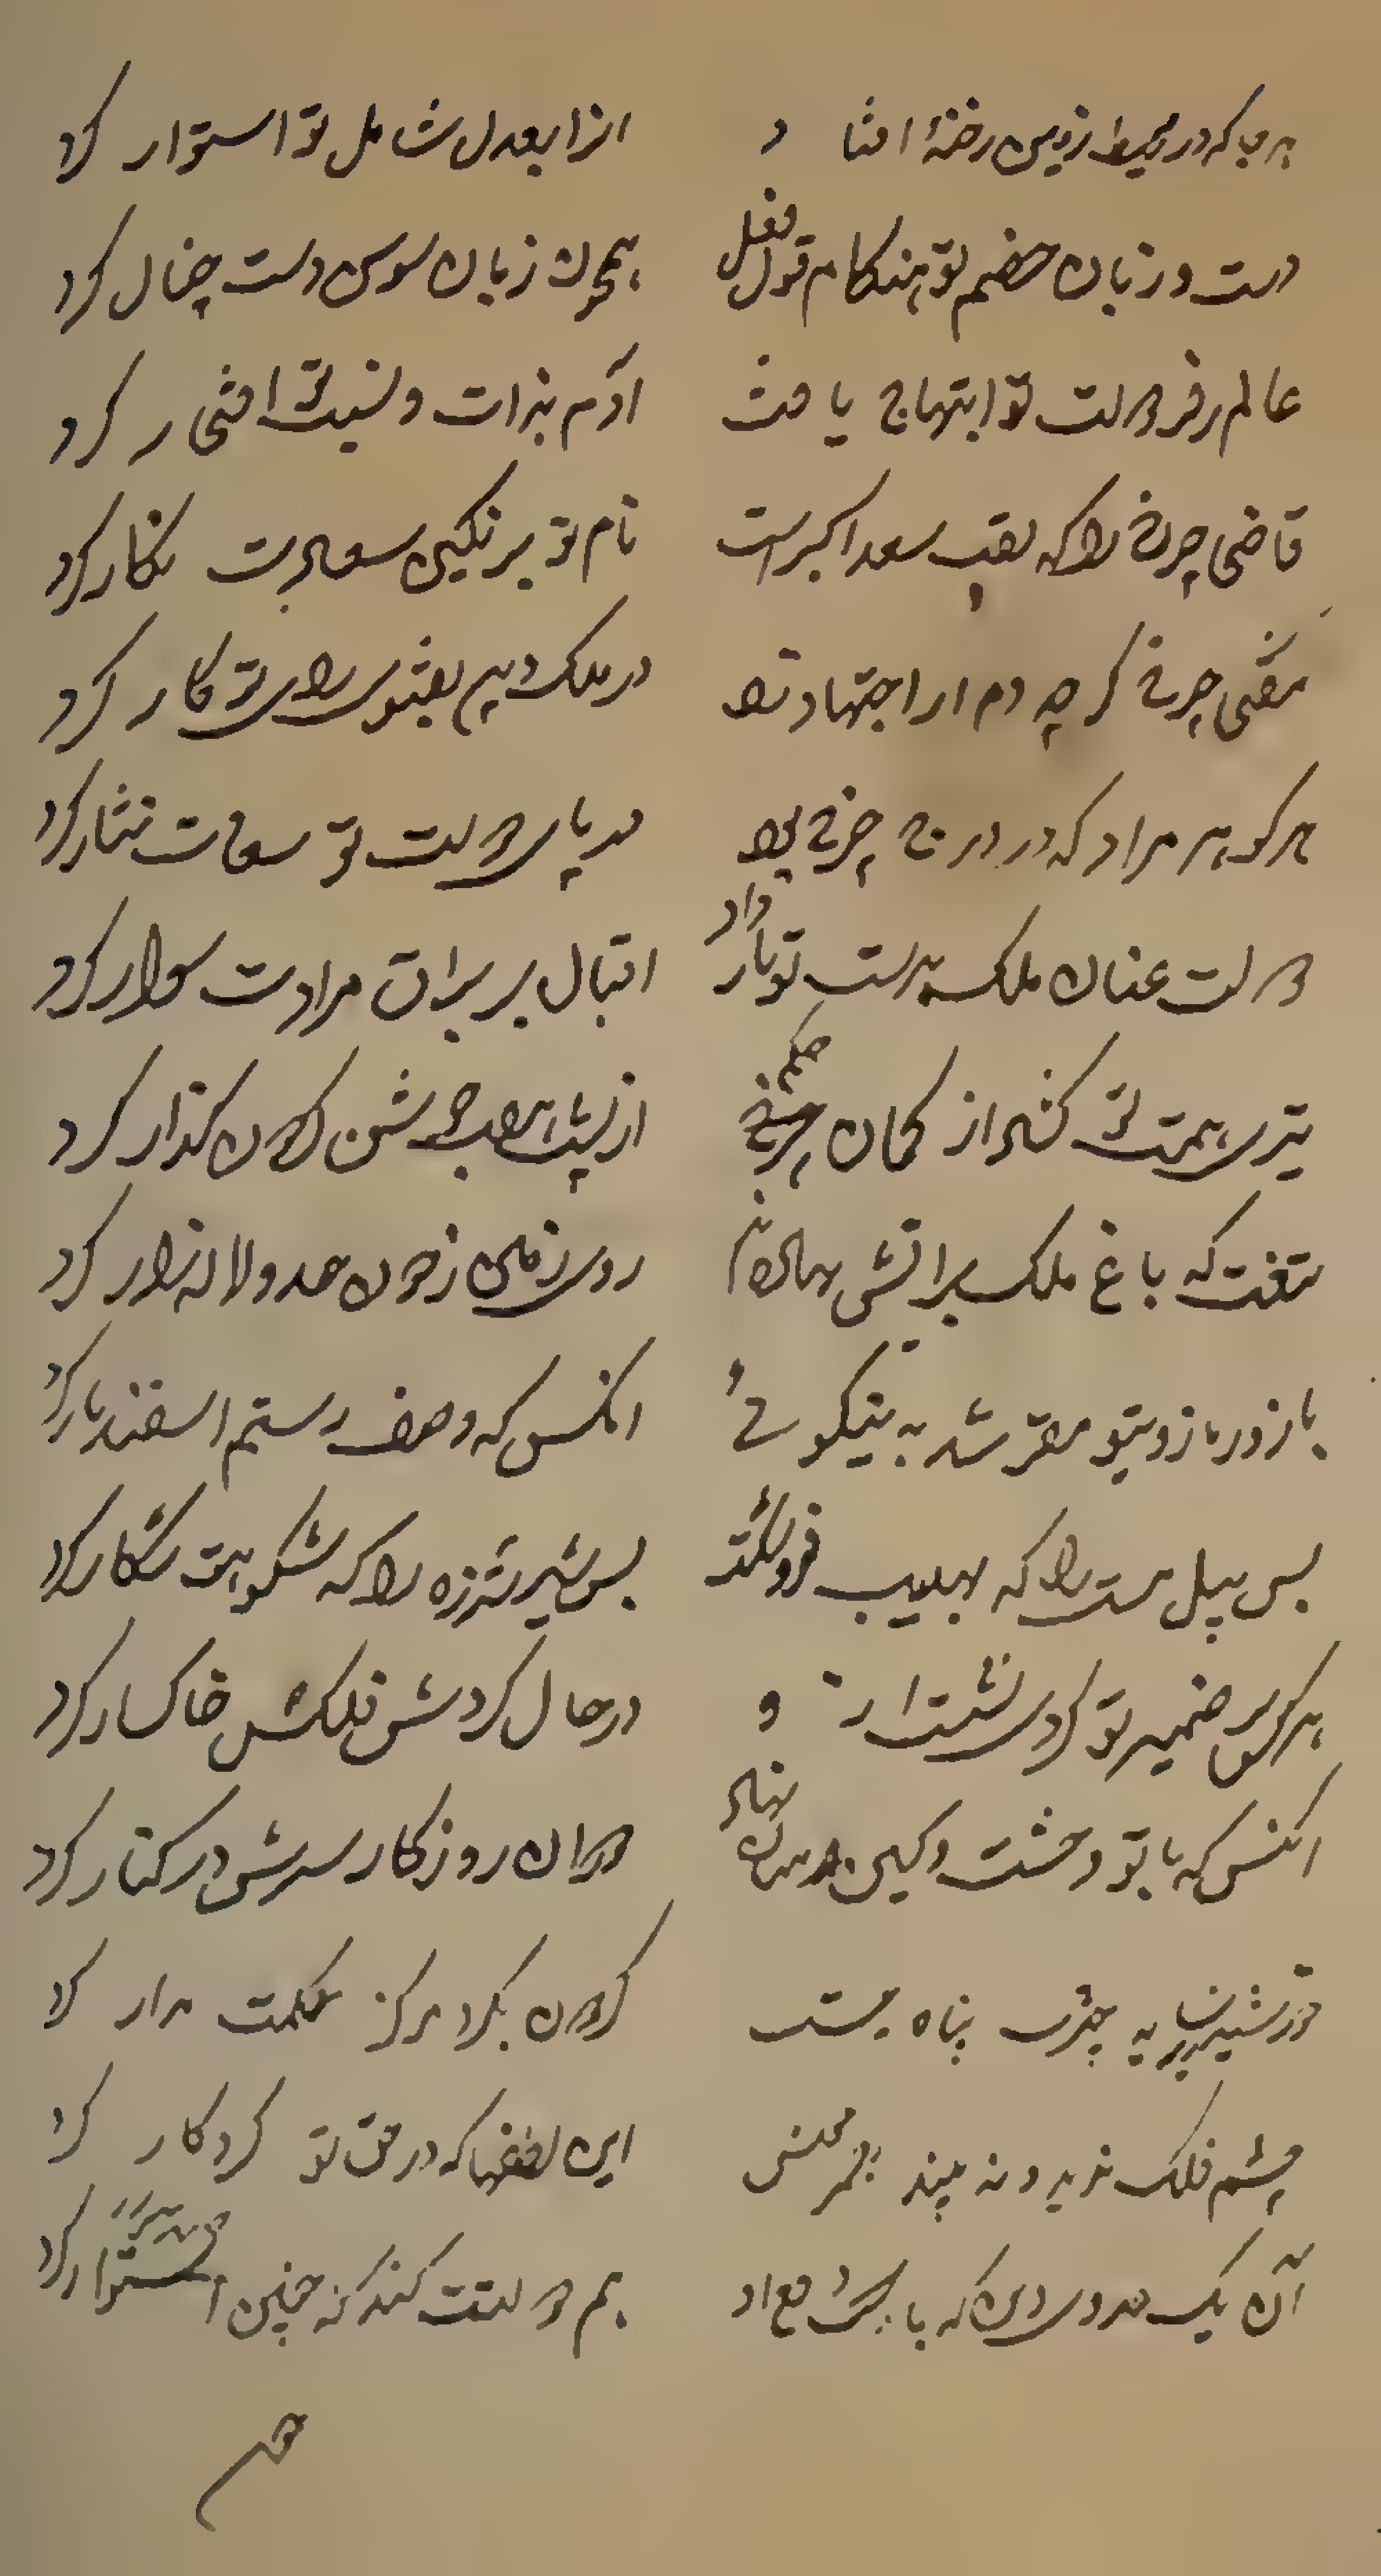 هر جا که در محیط زمین رخنهٔ افتاد انرا بعدل شامل تو استوار کرد
دست و زبان خصم تو هنکام قول و فعل همچون زبان سوسن و دست چنار کرد
عالم ز فر دولت تو ابتهاج یافت آدم بذات و نسبت تو افتخار کرد
قاضی چرخ را که لقب سعد اکبر است نام تو بر نکین سعادت نکار کرد
مفتی چرخ کر چه دم از اجتهاد زد در ملک و دین بفتوی رای تو کار کرد
هر کوهر مراد که در درج چرخ بود در پای دولت تو سعادت نثار کرد
دولت عنان ملک بدست تو باز داد اقبال بر براق مرادت سوار کرد
تیری همت تو کشاد از کمان حکم از پشت هفت جوشن کردون کذار کرد
تیغت که باغ ملک بر آتش روی زمین ز خون عدو لاله زار کرد
با زور بازوی تو مقر شد به نیکویی انکس که وصف رستم و اسفندیار کرد
بس پیل مست را که نهیبت فرو شکست بس شیر شرزه را که شکوهت شکار کرد
هر کس بر ضمیر تو کردی نشست ازو در حال کردش فلکش خاکسار کرد
انکس که با تو وحشت و کین در میان نهاد دوران روزکار سرش در کنار کرد
خورشید زیر سایه چترت پناه جست کردون بکرد مرکز حکمت مدار کرد
چشم فلک ندید و نه بیند بعمر خویش این لطفها که در حق تو کردکار کرد
آن یک عدوی دین که با هم دولتت کند که چنین استوار کرد